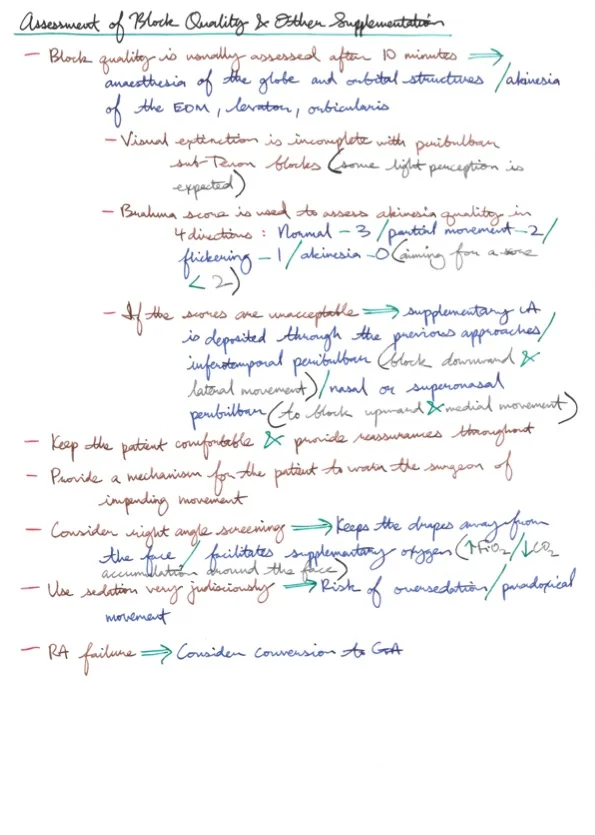 Assessment of Block Quality & Other Supplementation
- Block quality is usually assessed after 10 minutes ⟹
anaesthesia of the globe and orbital structures / akinesia
of the EOM, levator, orbicularis
- Visual extinction is incomplete with peribulbar
sub-Tenon blocks (some light perception is
expected)
- Brahma score is used to assess akinesia quality in
4 directions : Normal - 3 / partial movement - 2 /
flickering - 1 / akinesia - 0 (aiming for a score
< 2)
- If the scores are unacceptable ⟹ supplementary LA
is deposited through the previous approaches /
inferotemporal peribulbar (block downward &
lateral movement) / nasal or superonasal
peribulbar (to block upward & medial movement)
- Keep the patient comfortable & provide reassurances throughout
- Provide a mechanism for the patient to warn the surgeon of
impending movement
- Consider right angle screening ⟹ Keeps the drapes away from
the face / facilitates supplementary oxygen (↑FiO2 / ↓CO2
accumulation around the face)
- Use sedation very judisciously ⟹ Risk of oversedation / paradoxical
movement
- RA failure ⟹ Consider conversion to GA